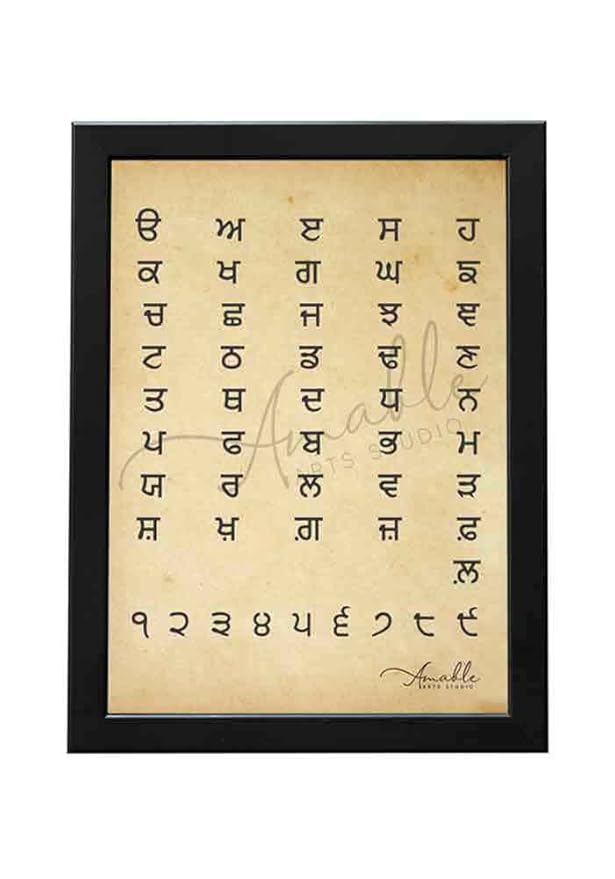 ੳ ਅ ੲ ਸ ਹ
ਕ ਖ ਗ ਘ ਙ
ਚ ਛ ਜ ਝ ਞ
ਟ ਠ ਡ ਢ ਣ
ਤ ਥ ਦ ਧ ਨ
ਪ ਫ ਬ ਭ ਮ
ਯ ਰ ਲ ਵ ੜ
ਸ਼ ਖ਼ ਗ਼ ਜ਼ ਫ਼
ਲ਼
੧ ੨ ੩ ੪ ੫ ੬ ੭ ੮ ੯
Amable
ARTS STUDIO
Amable
ARTS STUDIO